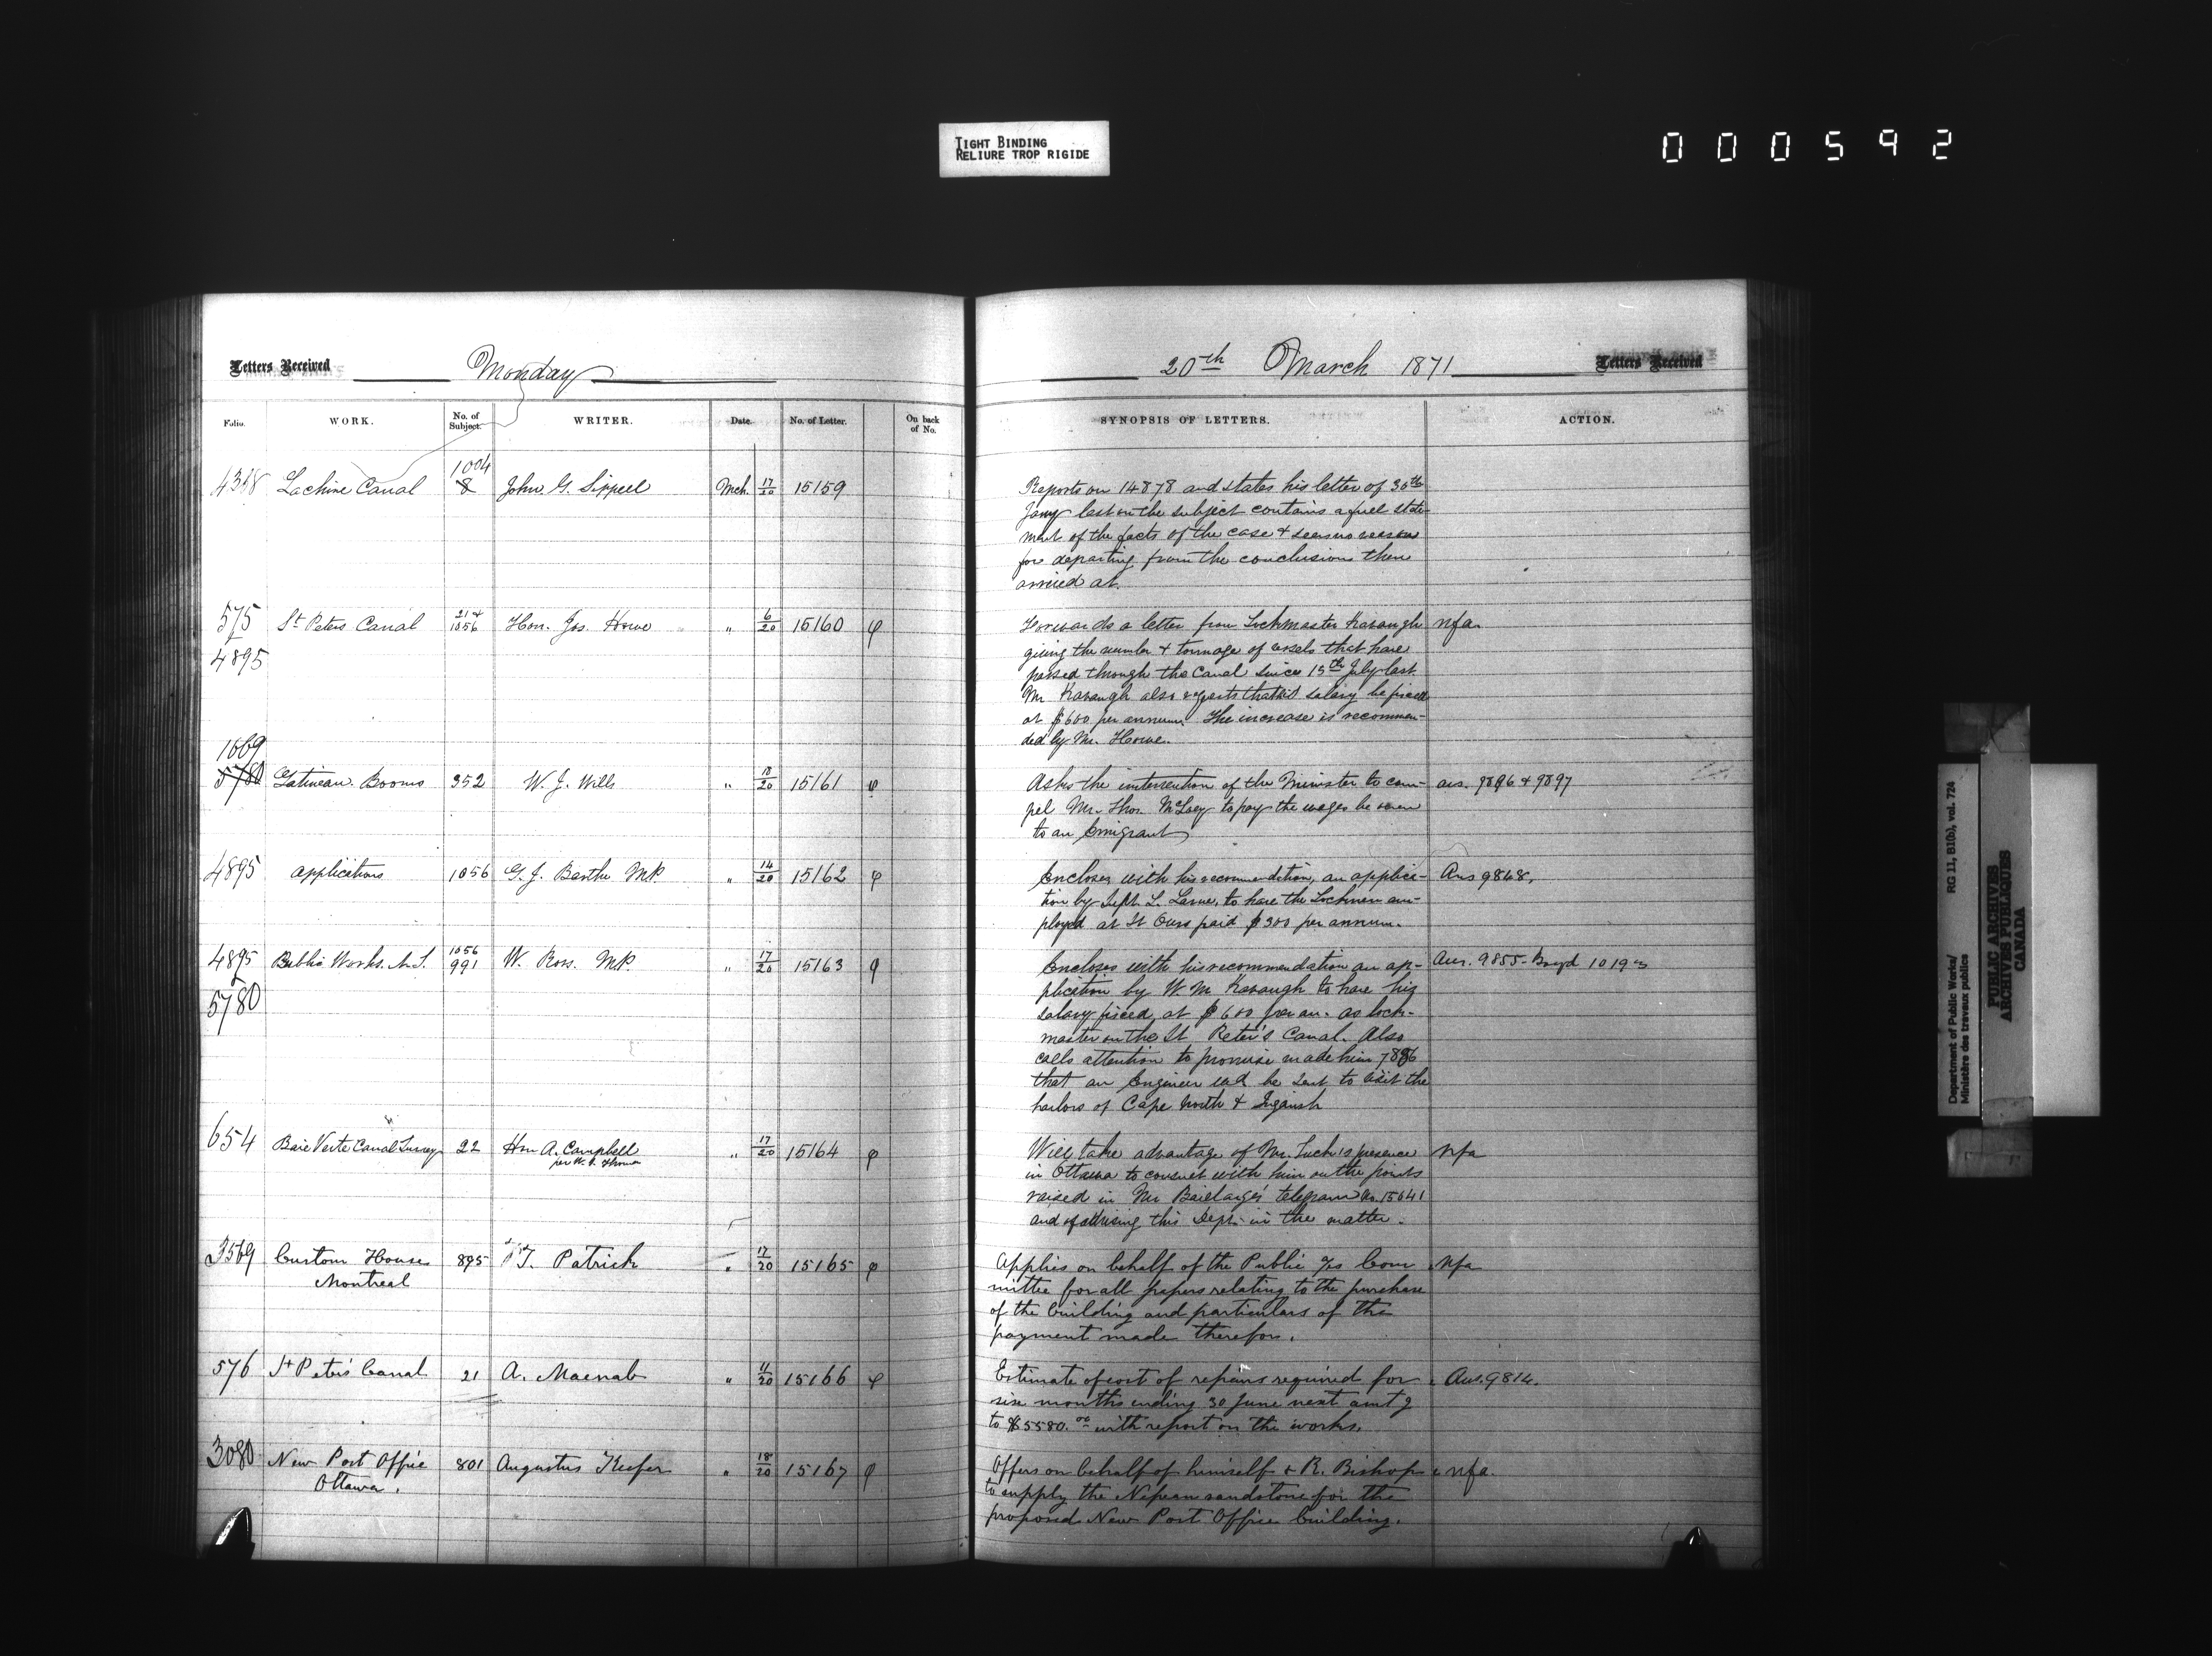 TIGHT BINDING
RELIURE TROP RIGIDE
000592
Letters Received Monday
Folio. WORK. No. of Subject. WRITER. Date. No. of Letter. On back of No.
1004
4358 Lachine Canal 8 John G. Sippell Mch. 17/20 15159
575 St Peters Canal 21 & 1056 Hon. Jos. Howe " 6/20 15160 φ
&
4895
1669
5780 Gatineau Booms 352 W. J. Wills " 18/20 15161 φ
4895 Applications 1056 G. J. Barthe MP. " 14/20 15162 φ
4895 Public Works. N.S. 1056 991 W. Ross. MP. " 17/20 15163 φ
&
5780
654 Baie Verte Canal Survey 22 Hon A. Campbell " 17/20 15164 φ
3569 Custom House 895 T. Patrick " 17/20 15165 φ
Montreal
576 St Peter's Canal 21 A. Macnab " 11/20 15166 φ
3080 New Post Office 801 Augustus Keefer " 18/20 15167 φ
Ottawa.
20th March 1871 Letters Received
SYNOPSIS OF LETTERS. ACTION.
Reports on 14878 and states his letter of 30th
Jany last on the subject contains a full state-
ment of the facts of the case & sees no reason
for departing from the conclusions then
arrived at.
Forwards a letter from Lockmaster Kavaugh nfa.
giving the number & tonnage of vessels that have
passed through the Canal since 15th July last.
Mr Kavaugh also requests that his salary be fixed
at $600 per annum. The increase is recommen-
ded by Mr. Howe.
Asks the intervention of the Minister to com- ans. 9896 & 9897
pel Mr. Thos. to pay the wages he owes
to an Emigrant
Encloses with his recommendation, an applica- Ans 9848.
tion by L. Larue, to have the Lockmen em-
ployed at St Ours paid $300 per annum.
Encloses with his recommendation an ap- Ans. 9855-
plication by W. M. Kavaugh to have his
salary fixed, at $600 per an. as lock-
master on the St Peter's Canal. Also
calls attention to promise made him 7886
that an Engineer wd be sent to visit the
harbors of Cape North & Ingonish
Will take advantage of Mr. presence nfa
in Ottawa to consult with him on the points
raised in Mr Baillairgé's telegram No. 15041
and of advising this Dept. in the matter.
Applies on behalf of the Public a/cs Com nfa
mittee for all papers relating to the purchase
of the building and particulars of the
payment made therefor.
Estimate of cost of repairs required for Ans. 9814.
six months ending 30 June next amtg
to $5580.00 with report on the works.
Offers on behalf of himself & R. Bishop nfa.
to supply the Nepean sandstone for the
proposed New Post Office building.
Department of Public Works/ RG 11, B1(b), vol. 724
Ministère des travaux publics
PUBLIC ARCHIVES
ARCHIVES PUBLIQUES
CANADA